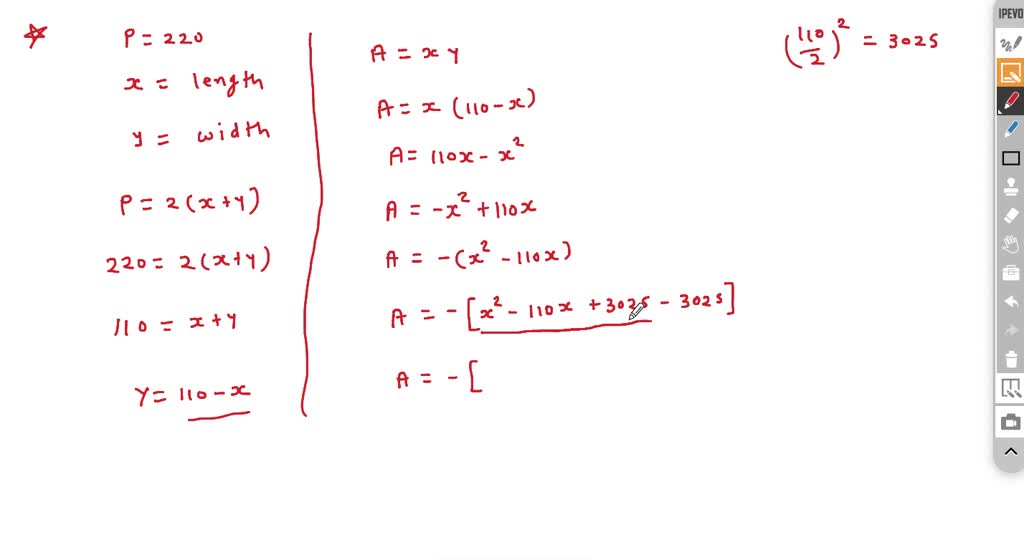 ☆ P = 220
x = length
y = width
P = 2(x+y)
220 = 2(x+y)
110 = x+y
y = 110-x
A = x y
A = x (110-x)
A = 110x - x²
A = -x² + 110x
A = -(x² - 110x)
A = - [x² - 110x + 3025 - 3025]
A = - [
(110/2)² = 3025
IPEVO